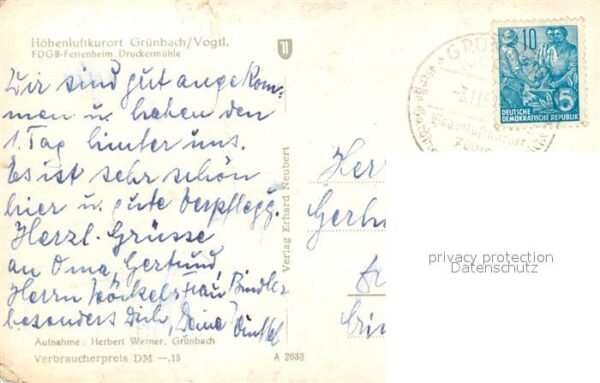 Höhenluftkurort Grünbach/Vogtl.
FDGB-Ferienheim Druckermühle
Wir sind gut angekom-
men u. haben den
1. Tag hinter uns.
Es ist sehr schön
hier u. gute Verpflegg.
Herzl. Grüsse
an Oma, Gertrud,
Herrn Frau Bindler
besonders Dich, Deine
Aufnahme: Herbert Werner, Grünbach
Verbraucherpreis DM —,15
A 2683
Verlag Erhard Neubert
GRÜN
Höhenluftkurort
10
5
DEUTSCHE
DEMOKRATISCHE REPUBLIK
Her
Gerh
privacy protection
Datenschutz